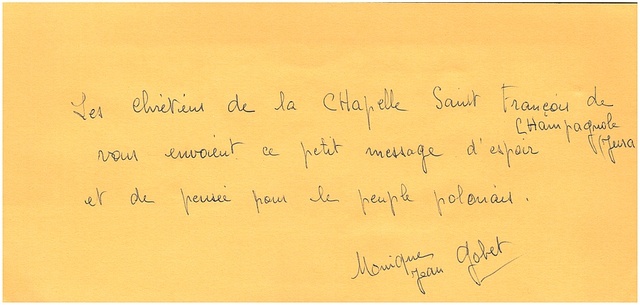 Les chrétiens de la CHapelle Saint François de
CHampagnole
(Jura
vous envoient ce petit message d'espoir
et de pensée pour le peuple polonais.
Monique
Jean Gobet